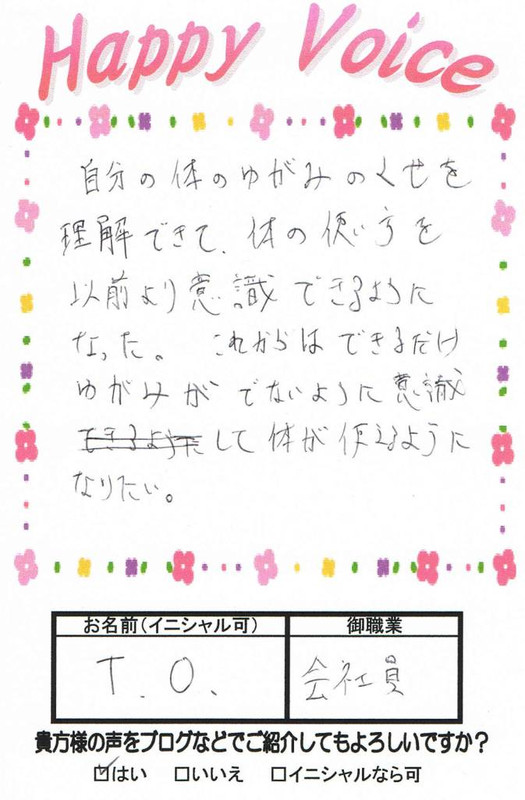 Happy Voice
自分の体のゆがみのくせを
理解できて、体の使い方を
以前より意識できるように
なった。 これからはできるだけ
ゆがみがでないように意識
できるようにして体が使えるように
なりたい。
お名前(イニシャル可) 御職業
T.O. 会社員
貴方様の声をブログなどでご紹介してもよろしいですか?
☑はい □いいえ □イニシャルなら可